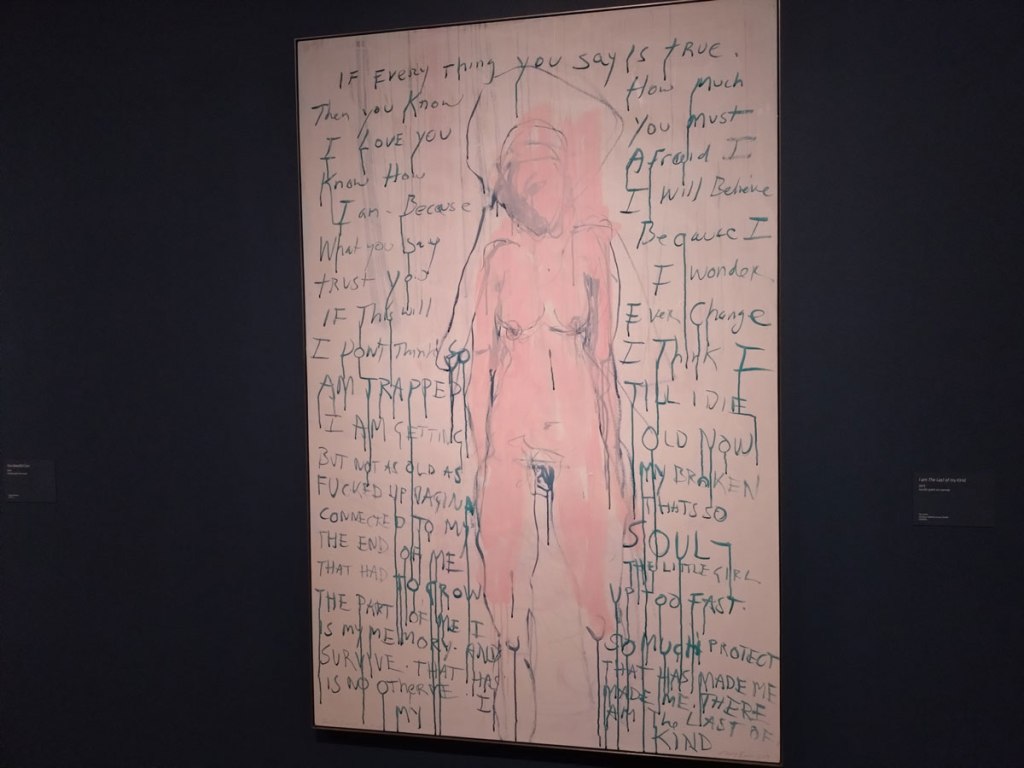 IF Every Thing You say Is True.
Then you Know How Much
I Love You You Must
Know How Afraid I
I am. Because I Will Believe
What you say Because I
trust you I wonder
IF This will Ever Change
I DONT Think I Think I
AM TRAPPED TILL I DIE
I AM GETTING OLD NOW
BUT NOT AS OLD AS MY BROKEN
FUCKED UP VAGINA THATS SO
CONNECTED TO MY SOUL-
THE END OF ME THE LITTLE GIRL
THAT HAD TO GROW UP TOO FAST.
THE PART OF ME I SO MUCH PROTECT
IS MY MEMORY. AND THAT HAS MADE ME
SURVIVE. THAT HAS MADE ME. THERE
IS NO I AM The LAST OF
MY KIND
I am The Last of my Kind